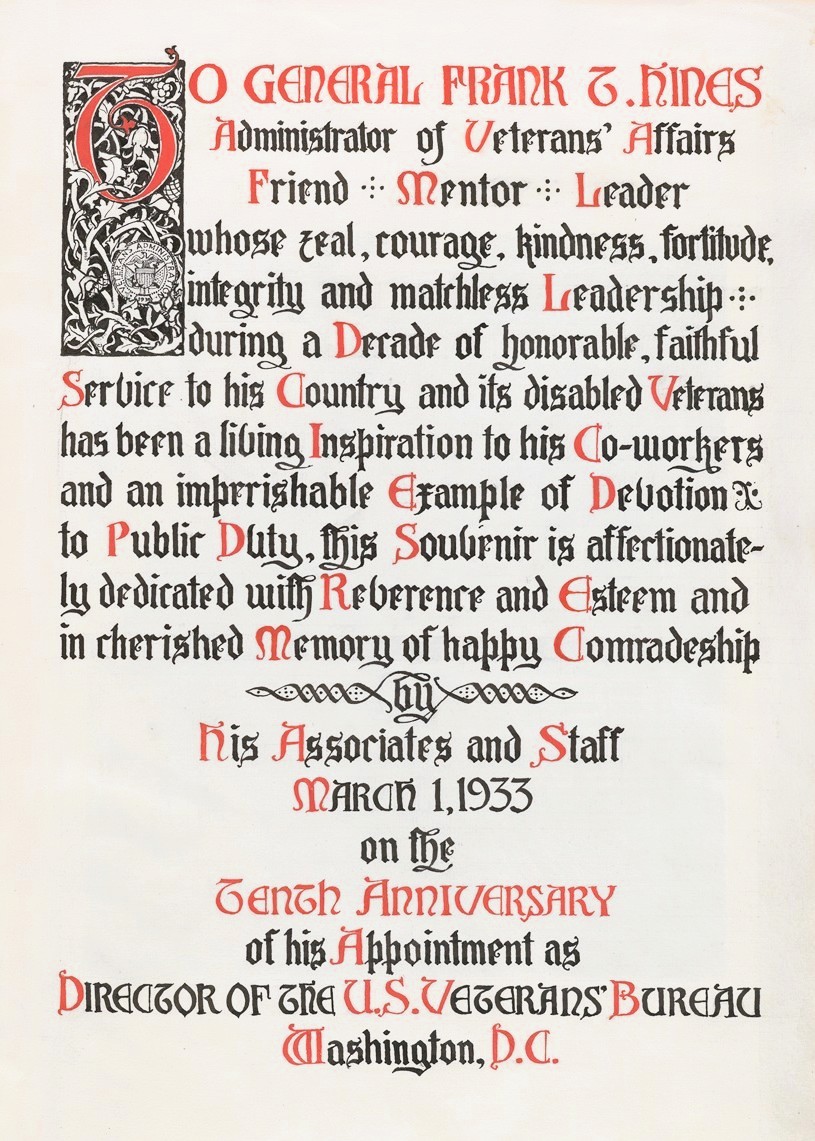 TO GENERAL FRANK T. HINES
Administrator of Veterans' Affairs
Friend Mentor Leader
whose zeal, courage, kindness, fortitude,
integrity and matchless Leadership
during a Decade of honorable, faithful
Service to his Country and its disabled Veterans
has been a living Inspiration to his Co-workers
and an imperishable Example of Devotion
to Public Duty, this Souvenir is affectionate-
ly dedicated with Reverence and Esteem and
in cherished Memory of happy Comradeship
by
His Associates and Staff
MARCH 1, 1933
on the
TENTH ANNIVERSARY
of his Appointment as
DIRECTOR OF THE U.S. VETERANS' BUREAU
Washington, D.C.